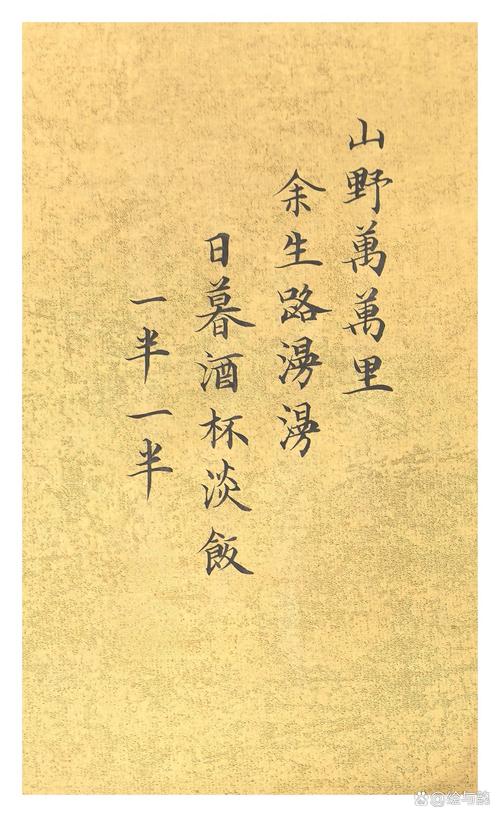 山野萬萬里
余生路漫漫
日暮酒杯淡飯
一半一半
@绘与韵